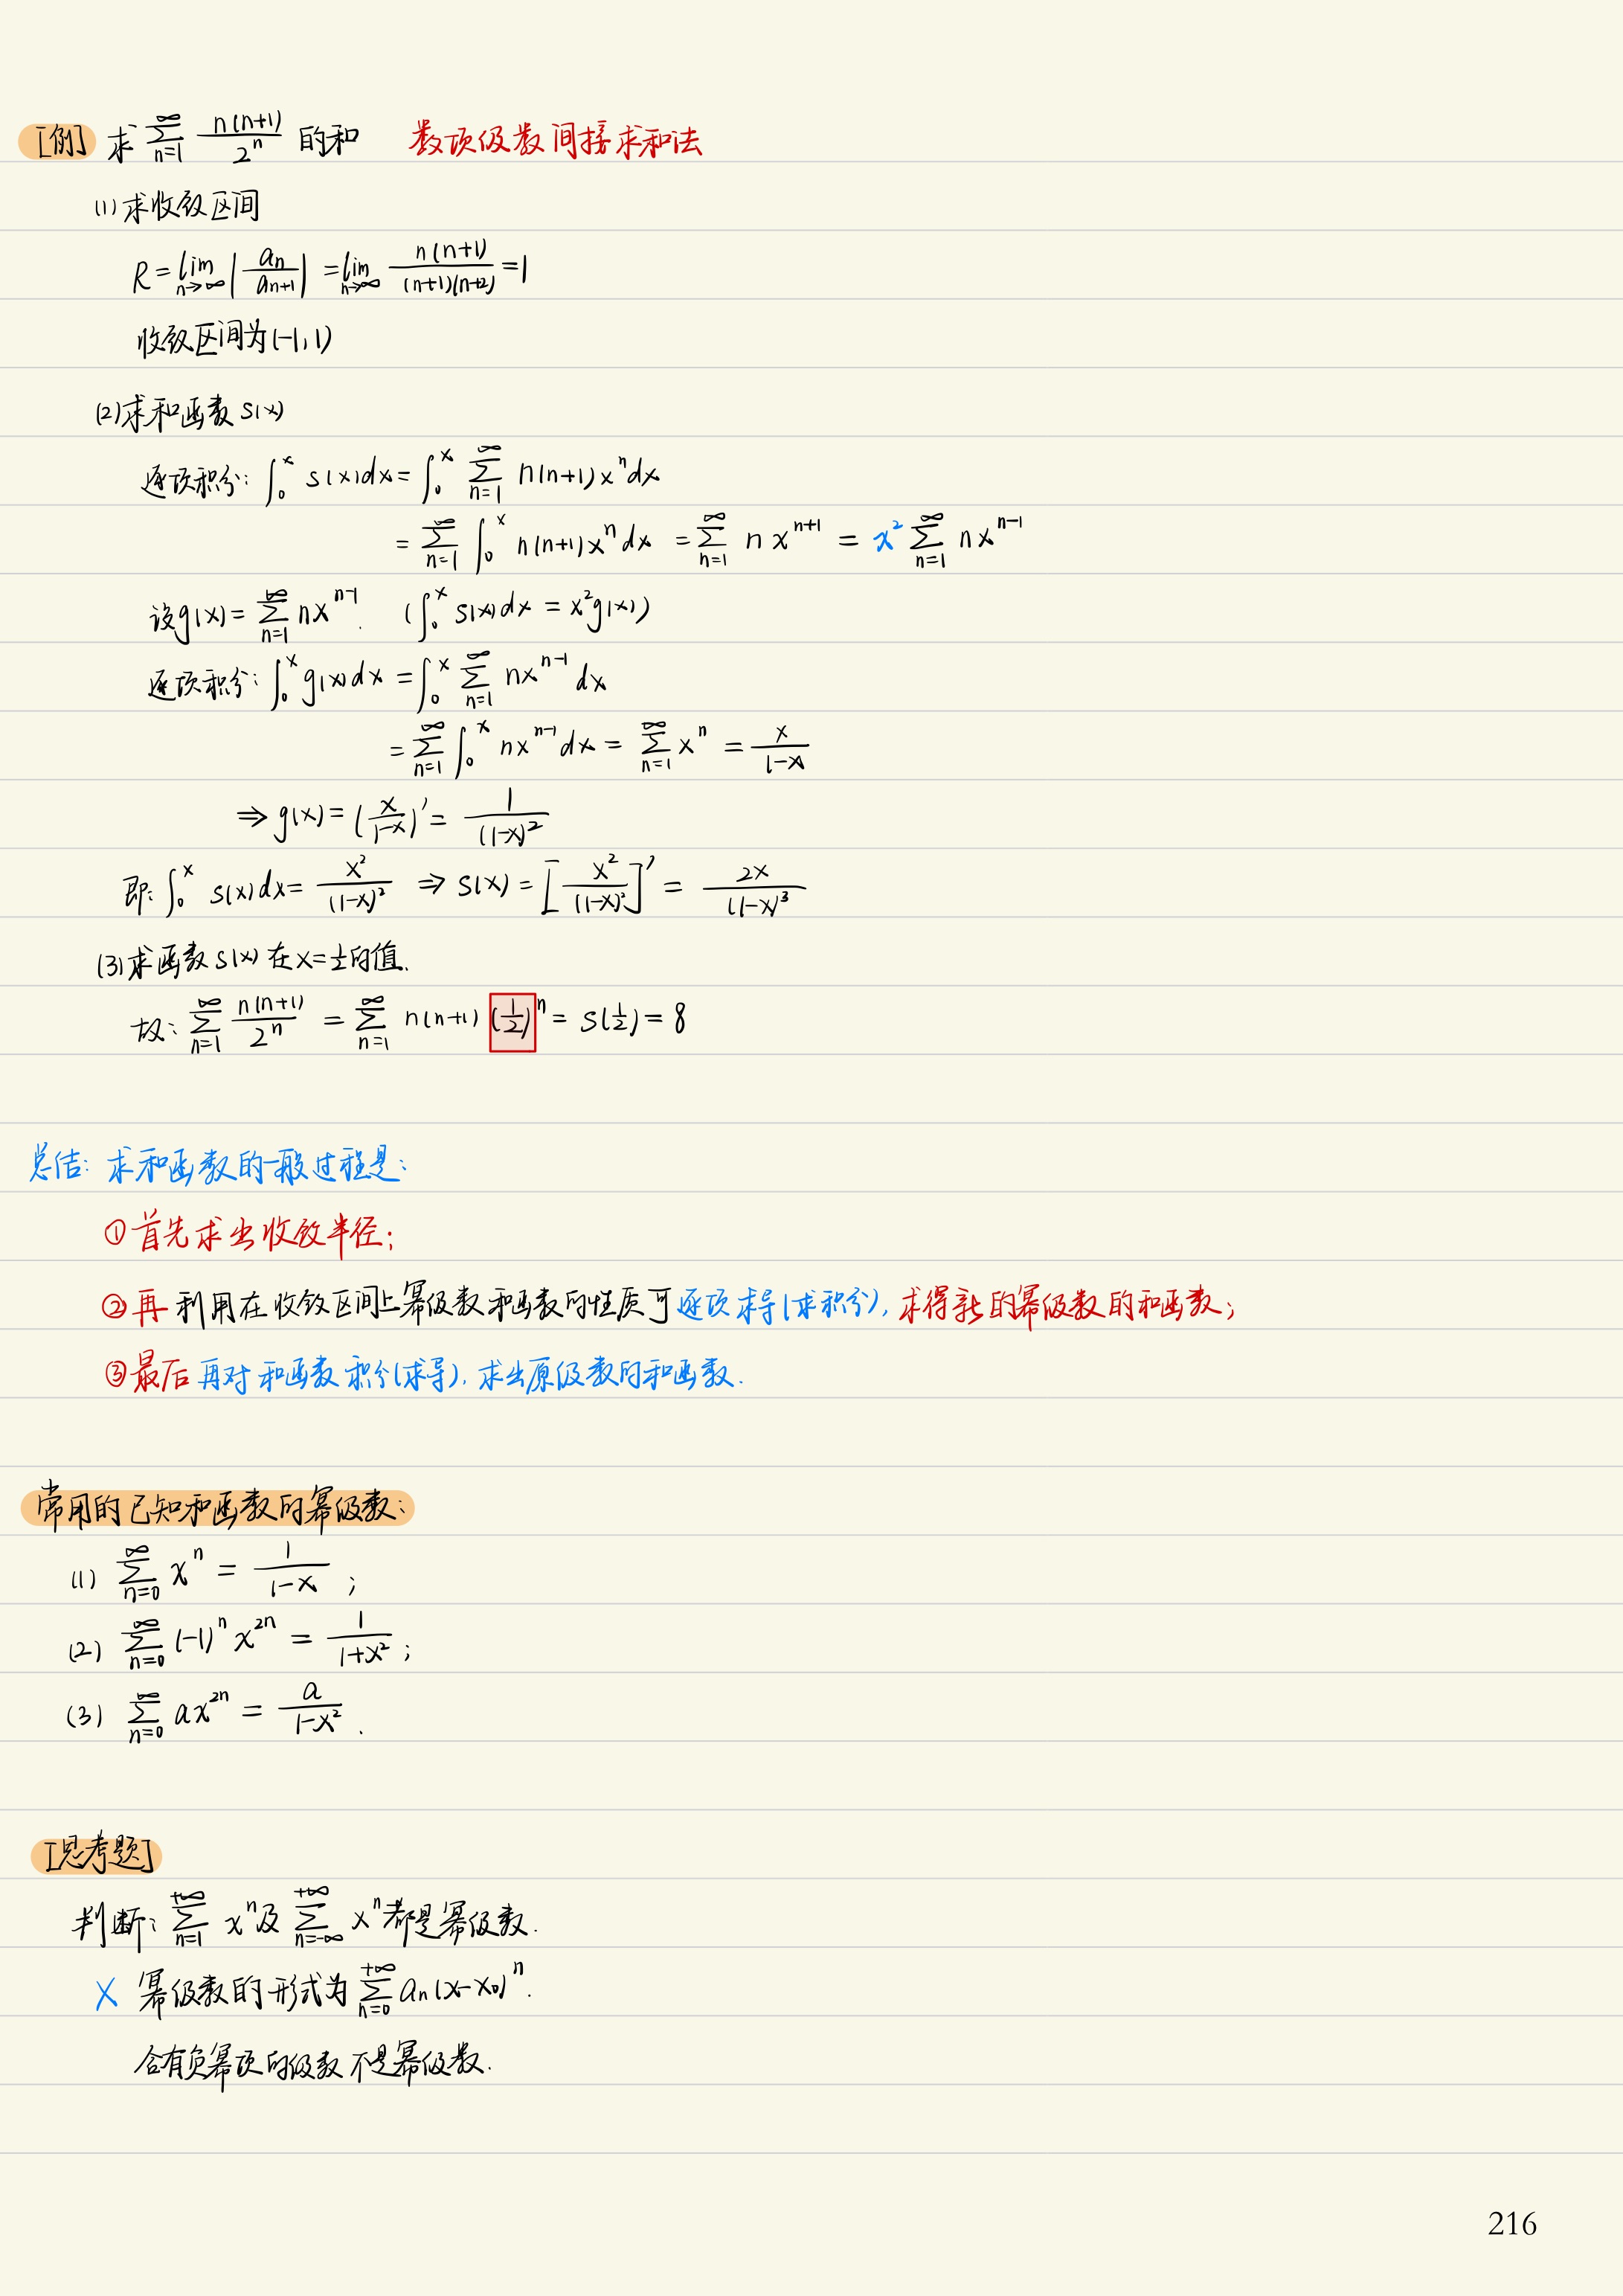 [例] 求 ∑_{n=1}^{∞} n(n+1)/2^n 的和 数项级数间接求和法
(1) 求收敛区间
R = lim_{n→∞} |a_n/a_{n+1}| = lim_{n→∞} n(n+1)/((n+1)(n+2)) = 1
收敛区间为(-1,1)
(2) 求和函数 S(x)
逐项积分: ∫_0^x S(x)dx = ∫_0^x ∑_{n=1}^{∞} n(n+1)x^n dx
= ∑_{n=1}^{∞} ∫_0^x n(n+1)x^n dx = ∑_{n=1}^{∞} n x^{n+1} = x^2 ∑_{n=1}^{∞} nx^{n-1}
设g(x) = ∑_{n=1}^{∞} nx^{n-1}. (∫_0^x S(x)dx = x^2g(x))
逐项积分: ∫_0^x g(x)dx = ∫_0^x ∑_{n=1}^{∞} nx^{n-1} dx
= ∑_{n=1}^{∞} ∫_0^x nx^{n-1}dx = ∑_{n=1}^{∞} x^n = x/(1-x)
⇒ g(x) = (x/(1-x))' = 1/(1-x)^2
即: ∫_0^x S(x)dx = x^2/(1-x)^2 ⇒ S(x) = [x^2/(1-x)^2]' = 2x/(1-x)^3
(3) 求函数S(x)在x=1/2的值.
故: ∑_{n=1}^{∞} n(n+1)/2^n = ∑_{n=1}^{∞} n(n+1)(1/2)^n = S(1/2) = 8
总结: 求和函数的一般过程是:
①首先求出收敛半径;
②再利用在收敛区间上幂级数和函数的性质可逐项求导(求积分), 求得新的幂级数的和函数;
③最后再对和函数积分(求导), 求出原级数的和函数.
常用的已知和函数的幂级数:
(1) ∑_{n=0}^{∞} x^n = 1/(1-x) ;
(2) ∑_{n=0}^{∞} (-1)^n x^{2n} = 1/(1+x^2) ;
(3) ∑_{n=0}^{∞} ax^{2n} = a/(1-x^2) .
[思考题]
判断: ∑_{n=1}^{+∞} x^n及 ∑_{n=-∞}^{+∞} x^n都是幂级数.
× 幂级数的形式为 ∑_{n=0}^{+∞} a_n(x-x_0)^n.
含有负幂项的级数不是幂级数.
216